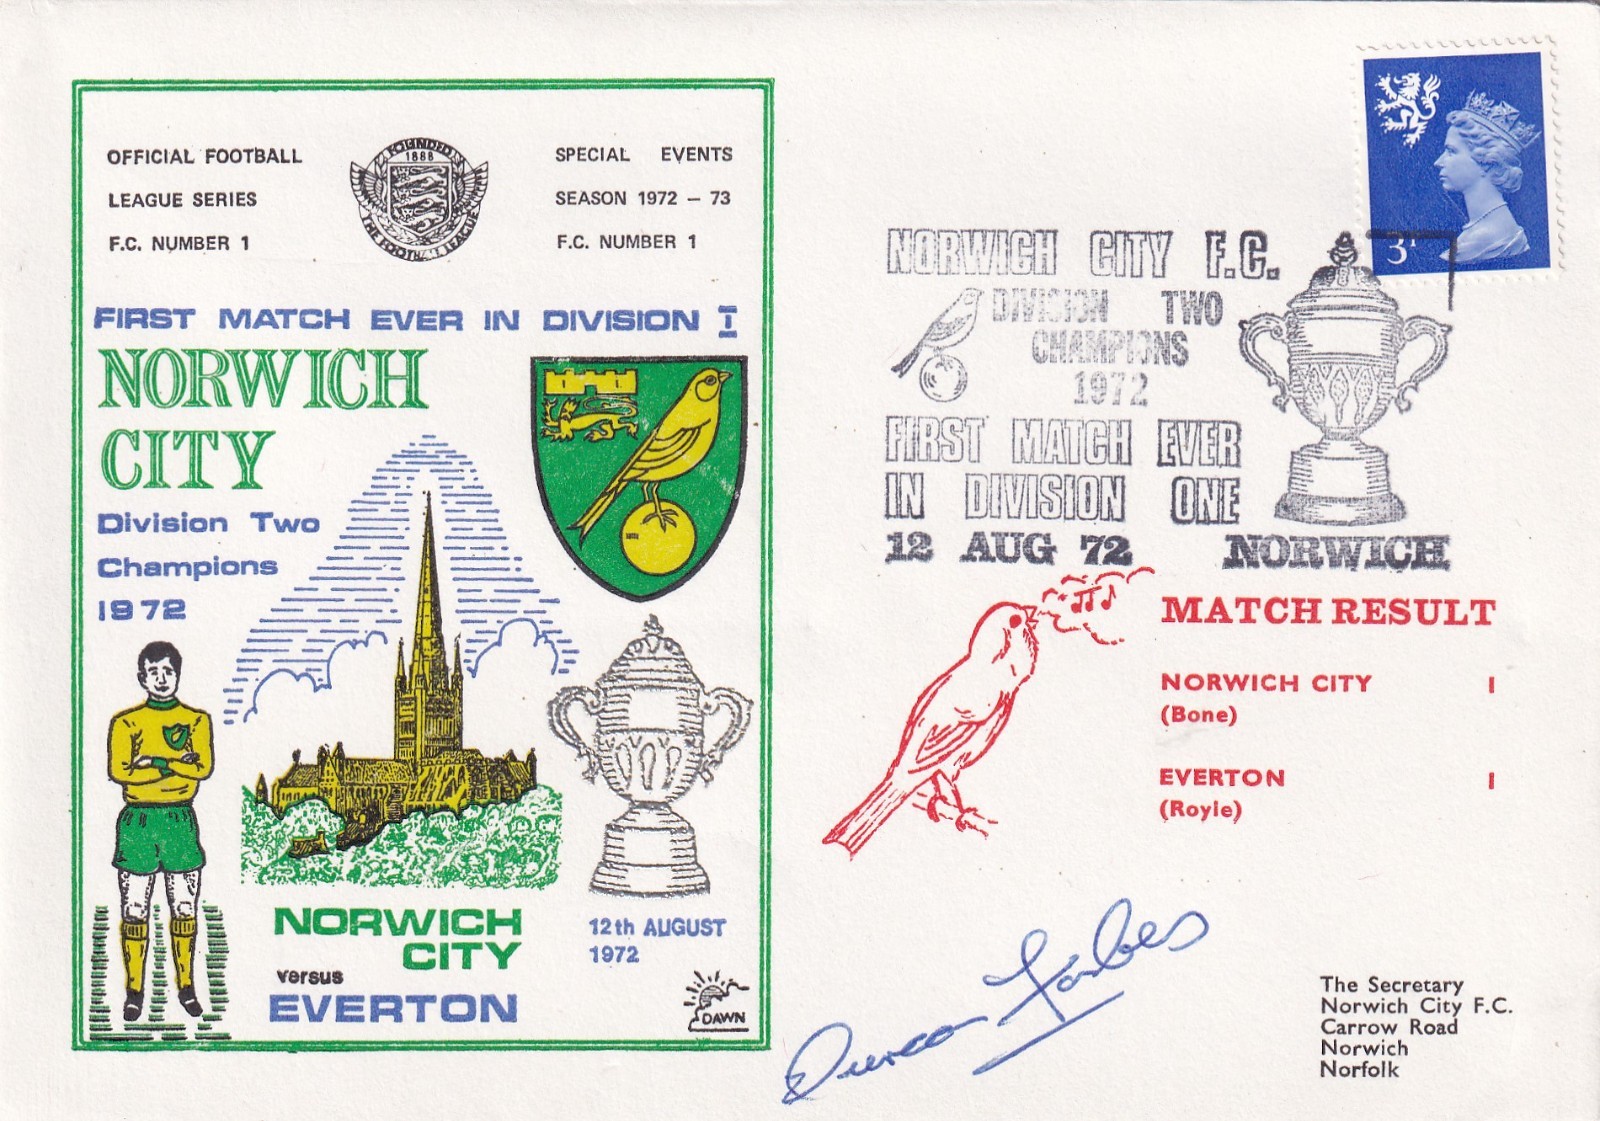 OFFICIAL FOOTBALL
LEAGUE SERIES
F.C. NUMBER 1
FOUNDED
1888
THE FOOTBALL LEAGUE
SPECIAL EVENTS
SEASON 1972 – 73
F.C. NUMBER 1
FIRST MATCH EVER IN DIVISION I
NORWICH
CITY
Division Two
Champions
1972
NORWICH
CITY
versus
EVERTON
12th AUGUST
1972
DAWN
3P
NORWICH CITY F.C.
DIVISION TWO
CHAMPIONS
1972
FIRST MATCH EVER
IN DIVISION ONE
12 AUG 72 NORWICH
MATCH RESULT
NORWICH CITY 1
(Bone)
EVERTON 1
(Royle)
Duncan Forbes
The Secretary
Norwich City F.C.
Carrow Road
Norwich
Norfolk